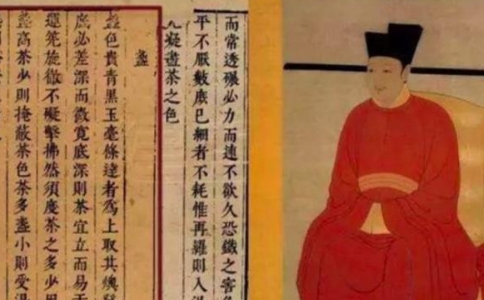 而常透碾必力而速不欲久恐鐵之害
平不厭數庶已細者不耗惟再羅則入
凝盡茶之色
盞
盞色貴青黑玉毫條達者爲上取其煥發
底必差深而微寛底深則茶宜立而易于
運筅旋徹不礙擊拂然須度茶之多少用
盞高茶少則掩蔽茶色茶多盞小則受湯